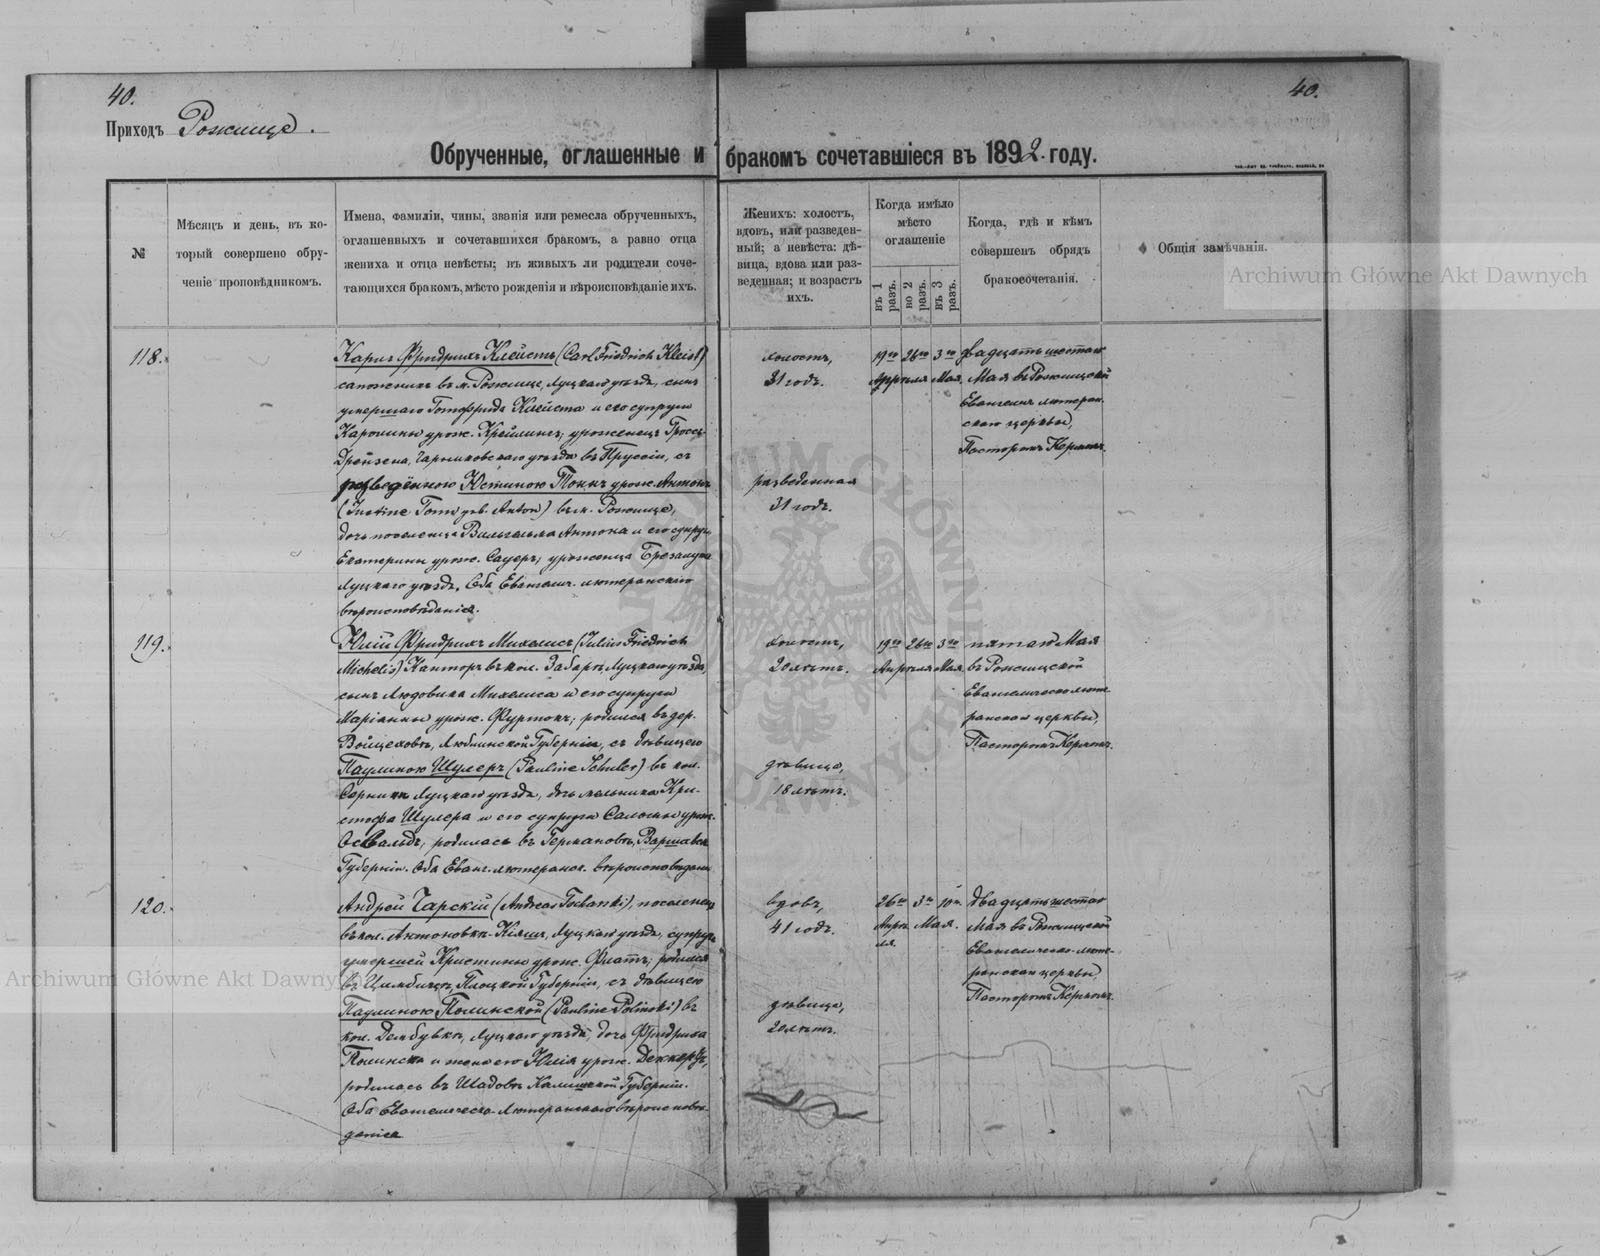 40.
40.
Приходъ Рожище.
Обрученные, оглашенные и бракомъ сочетавшіеся въ 1892 году.
№
Мѣсяцъ и день, въ ко-
торый совершено обру-
ченіе проповѣдникомъ.
Имена, фамиліи, чины, званія или ремесла обрученныхъ,
оглашенныхъ и сочетавшихся бракомъ, а равно отца
жениха и отца невѣсты; въ живыхъ ли родители соче-
тающихся бракомъ, мѣсто рожденія и вѣроисповѣданіе ихъ.
Женихъ: холостъ,
вдовъ, или разведен-
ный; а невѣста: дѣ-
вица, вдова или раз-
веденная; и возрастъ
ихъ.
Когда имѣло
мѣсто
оглашеніе
въ 1 разъ.
во 2 разъ.
въ 3 разъ.
Когда, гдѣ и кѣмъ
совершенъ обрядъ
бракосочетанія.
Общія замѣчанія.
Archiwum Główne Akt Dawnych
118.
Карлъ Фридрихъ Клейстъ (Carl Friedrich Kleist)
сапожникъ въ м. Рожище, Луцкаго уѣзда, сынъ
умершаго Готфрида Клейста и его супруги
Каролины урож. Креймингъ; уроженецъ Гроссъ-
Дрензена, Чарниковскаго уѣзда въ Пруссіи, съ
разведённою Юстиною Тоннъ урож. Антонъ
(Justine Tonn geb. Anton) въ м. Рожище,
дочь поселенца Вильгельма Антона и его супруги
Екатерины урож. Сауеръ; уроженца
Луцкаго уѣзда. Оба Евангелич. лютеранскаго
вѣроисповѣданія.
холостъ,
31 годъ.
разведенная
31 годъ.
19го 26го 3го
Апрѣля Мая.
двадцать шестаго
Мая въ Рожищской
Евангелич лютеран.
ской церкви,
Пасторомъ Керномъ.
119.
Юлій Фридрихъ Михелисъ (Julius Friedrich
Michelis) Канторъ въ кол. Забара, Луцкаго уѣзда,
сынъ Людовика Михелиса и его супруги
Маріанны урож. Фуртокъ; родился въ дер.
Войцеховъ, Люблинской Губерніи, съ дѣвицею
Паулиною Шулеръ (Pauline Schuler) въ кол.
Сарники Луцкаго уѣзда, дочь мельника Кри-
стофа Шулера и его супруги Саломы урож.
Освальдъ, родилась въ Германовѣ, Варшавск.
Губерніи. Оба Еванг. лютеранск. вѣроисповѣданія
холостъ,
20 лѣтъ.
дѣвица,
18 лѣтъ.
19го 26го 3го
Апрѣля Мая
пятаго Мая
въ Рожищской
Евангелическо люте-
ранской церкви,
Пасторомъ Керномъ.
120.
Андрей Чарскій (Andreas), поселенецъ
въ кол. Антоновка-Кіяшъ, Луцкаго уѣзда, супругъ
умершей Кристины урож. Флатъ; родился
въ, Плоцкой Губерніи, съ дѣвицею
Паулиною Полинской (Pauline Polinski) въ
кол. Дембувка, Луцкаго уѣзда, дочь Фридриха
Полинска и жена его Юлія урож. Деккертъ,
родилась въ Шадовъ Калишской Губерніи.
Оба Евангелическо-Лютеранскаго вѣроисповѣ-
данія
вдовъ,
41 годъ.
дѣвица,
20 лѣтъ.
26го 3го 10го
Апрѣ- Мая.
ля.
двадцать шестаго
Мая въ Рожищской
Евангелическо-люте-
ранской церкви,
Пасторомъ Керномъ.
Archiwum Główne Akt Dawnych
ARCHIWUM GŁÓWNE AKT DAWNYCH